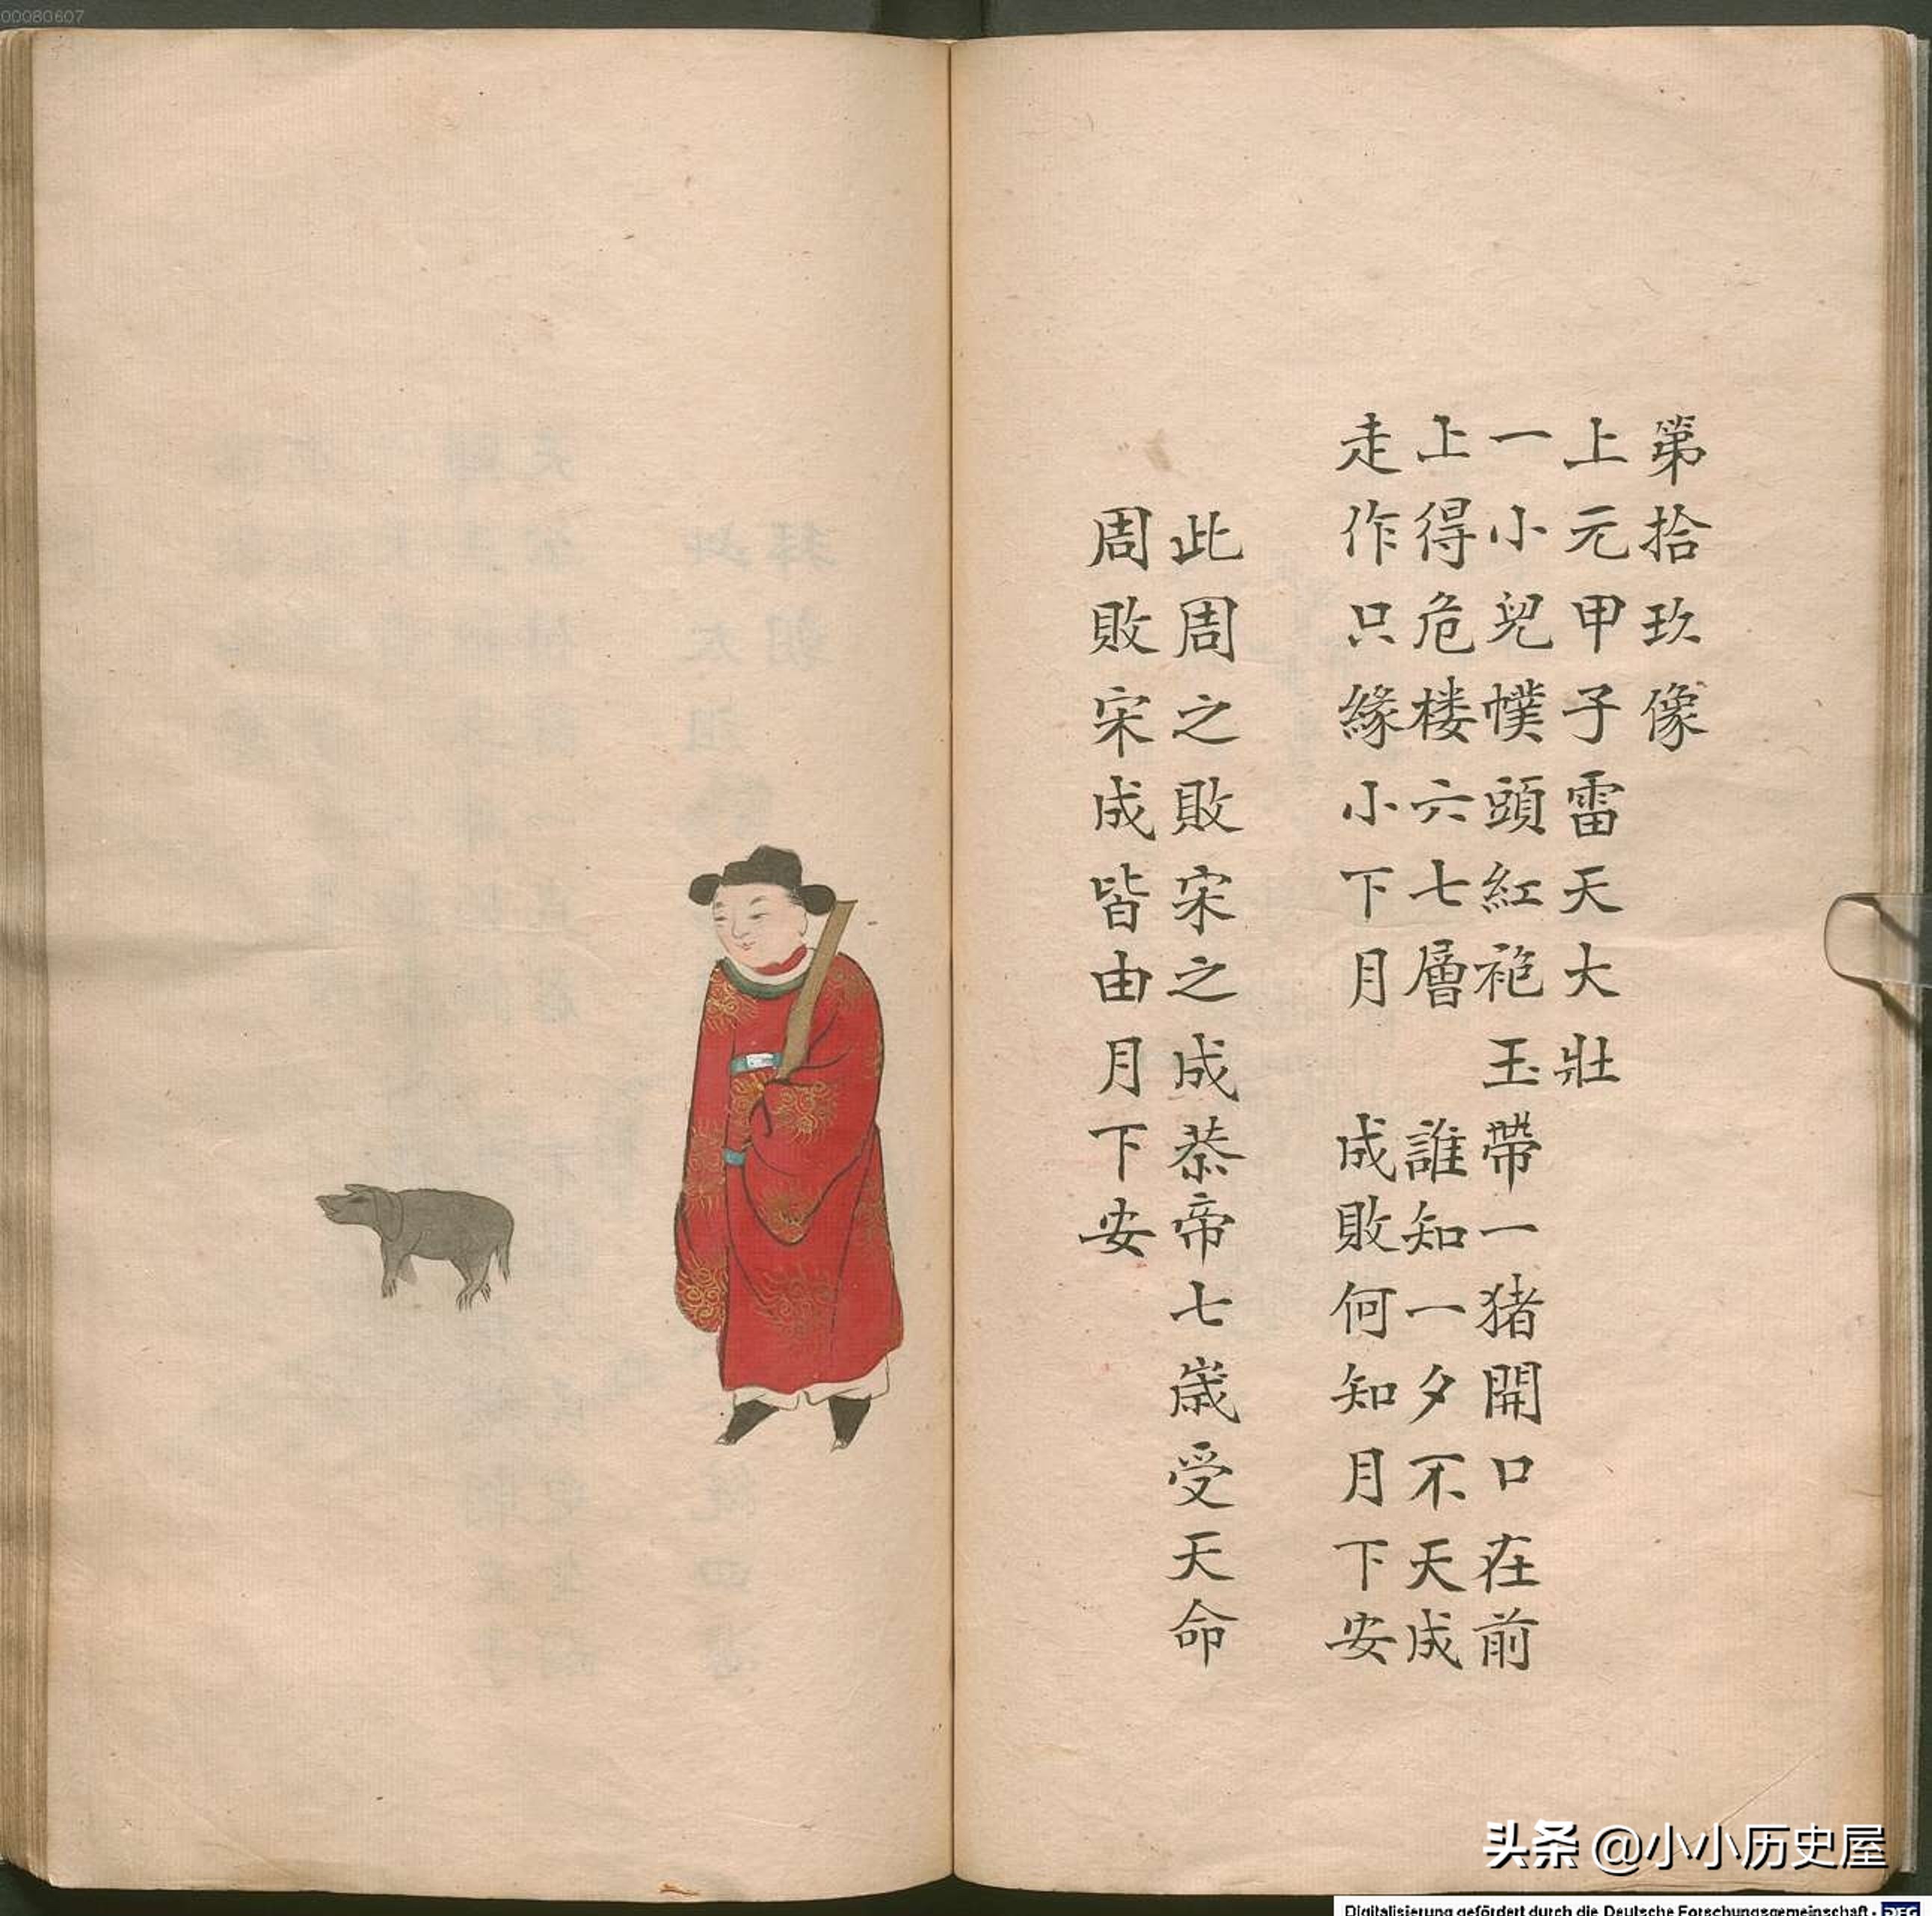 00080607
第拾玖像
上元甲子雷天大壯
一小兒幞頭紅袍玉帶一猪開口在前
上得危楼六七層 誰知一夕不天成
走作只緣小下月 成敗何知月下安
此周之敗宋之成恭帝七歲受天命
周敗宋成皆由月下安
头条 @小小历史屋
Digitalisierung gefördert durch die Deutsche Forschungsgemeinschaft - DFG